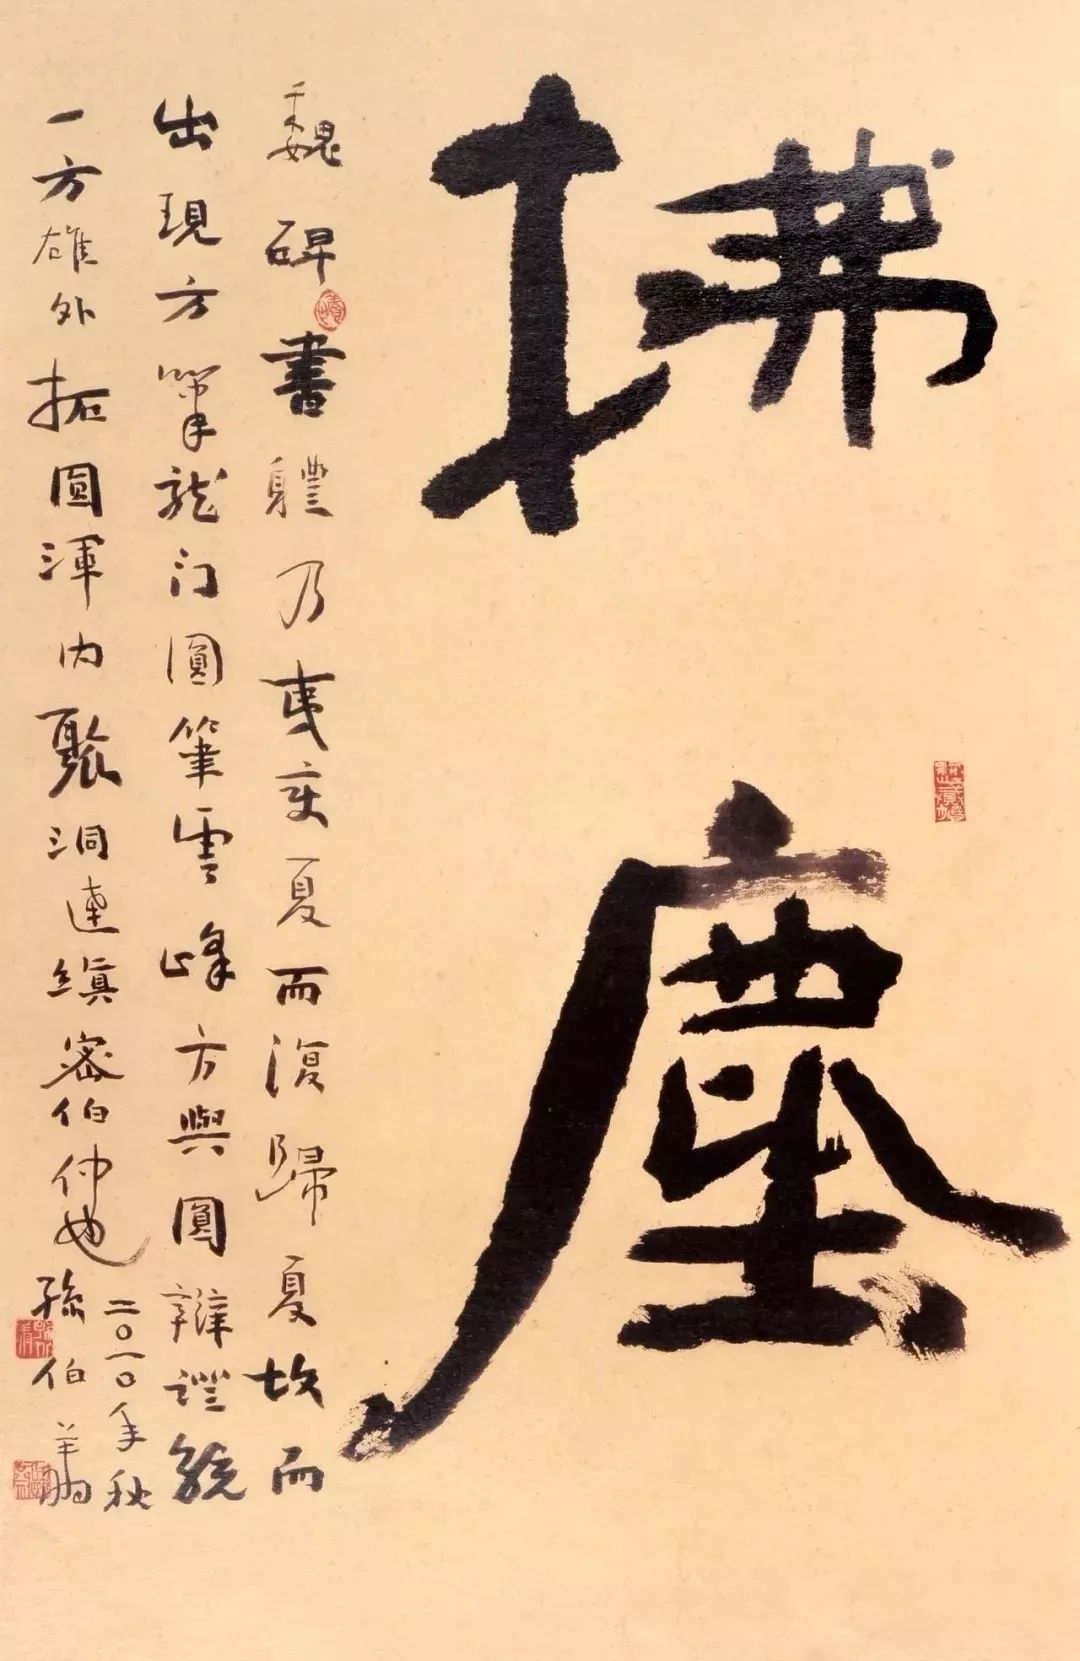 拂塵
魏碑書體乃夷变夏而復歸夏故而
出現方筆龍门圓筆雲峰方與圓辯證統
一方雄外拓圓渾内聚洞達縝密伯仲也
二〇一〇年秋
孫伯翔